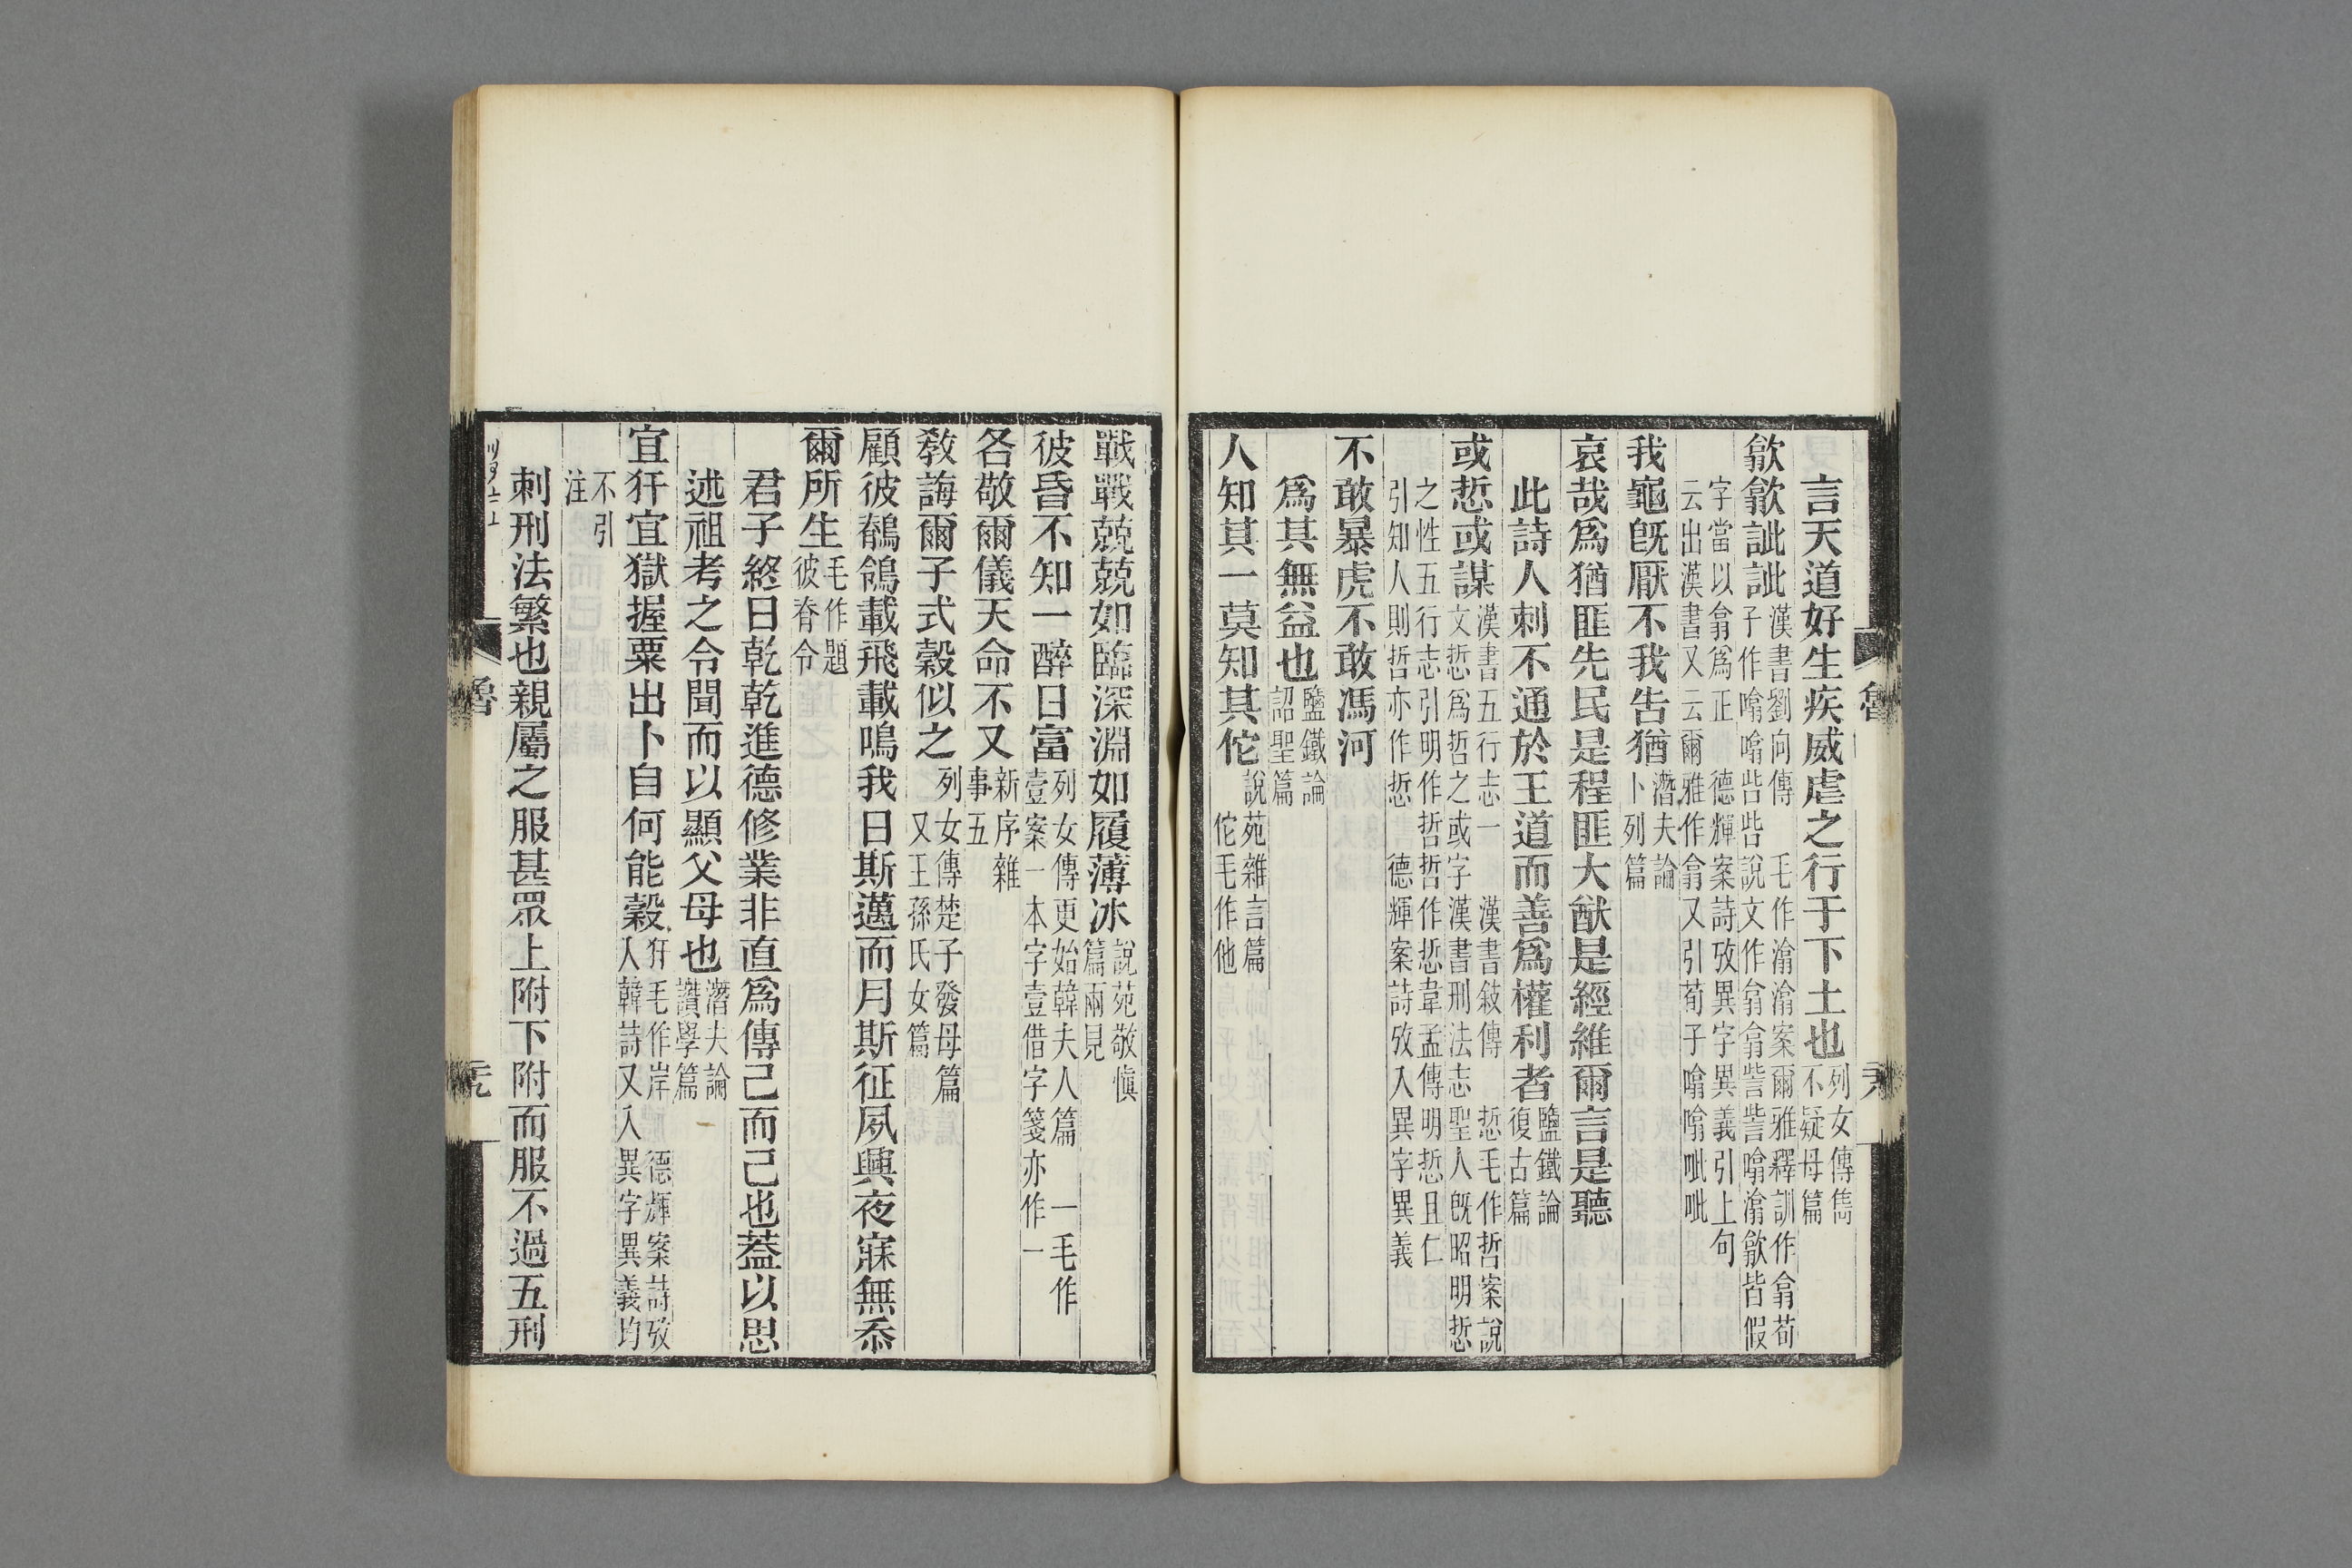 言天道好生疾威虐之行于下土也列女傳雋不疑母篇
歙歙訿訿漢書劉向傳 毛作潝潝案爾雅釋訓作翕荀子作噏噏呰呰說文作翕翕訾訾噏潝歙皆假
字當以翕爲正 德輝案詩攷異字異義引上句云出漢書又云爾雅作翕又引荀子噏噏呲呲
我龜旣厭不我告猶潛夫論卜列篇
哀哉爲猶匪先民是程匪大猷是經維爾言是聽
此詩人刺不通於王道而善爲權利者鹽鐵論復古篇
或悊或謀漢書五行志一 漢書敍傳 悊毛作哲案說文悊爲哲之或字漢書刑法志聖人旣昭明悊
之性五行志引明作哲哲作悊韋孟傳明悊且仁引知人則哲亦作悊 德輝案詩攷入異字異義
不敢暴虎不敢馮河
爲其無益也鹽鐵論詔聖篇
人知其一莫知其佗說苑雜言篇佗毛作他
戰戰兢兢如臨深淵如履薄冰說苑敬愼篇兩見
彼昏不知一醉日富列女傳更始韓夫人篇 一毛作壹案一本字壹借字箋亦作一
各敬爾儀天命不又新序雜事五
敎誨爾子式穀似之列女傳楚子發母篇又王孫氏女篇
顧彼鶺鴒載飛載鳴我日斯邁而月斯征夙興夜寐無忝
爾所生毛作題彼脊令
君子終日乾乾進德修業非直爲傳己而已也葢以思
述祖考之令聞而以顯父母也潛夫論讚學篇
宜犴宜獄握粟出卜自何能穀犴毛作岸 德輝案詩攷入韓詩又入異字異義均
不引注
刺刑法繁也親屬之服甚眾上附下附而服不過五刑
魯